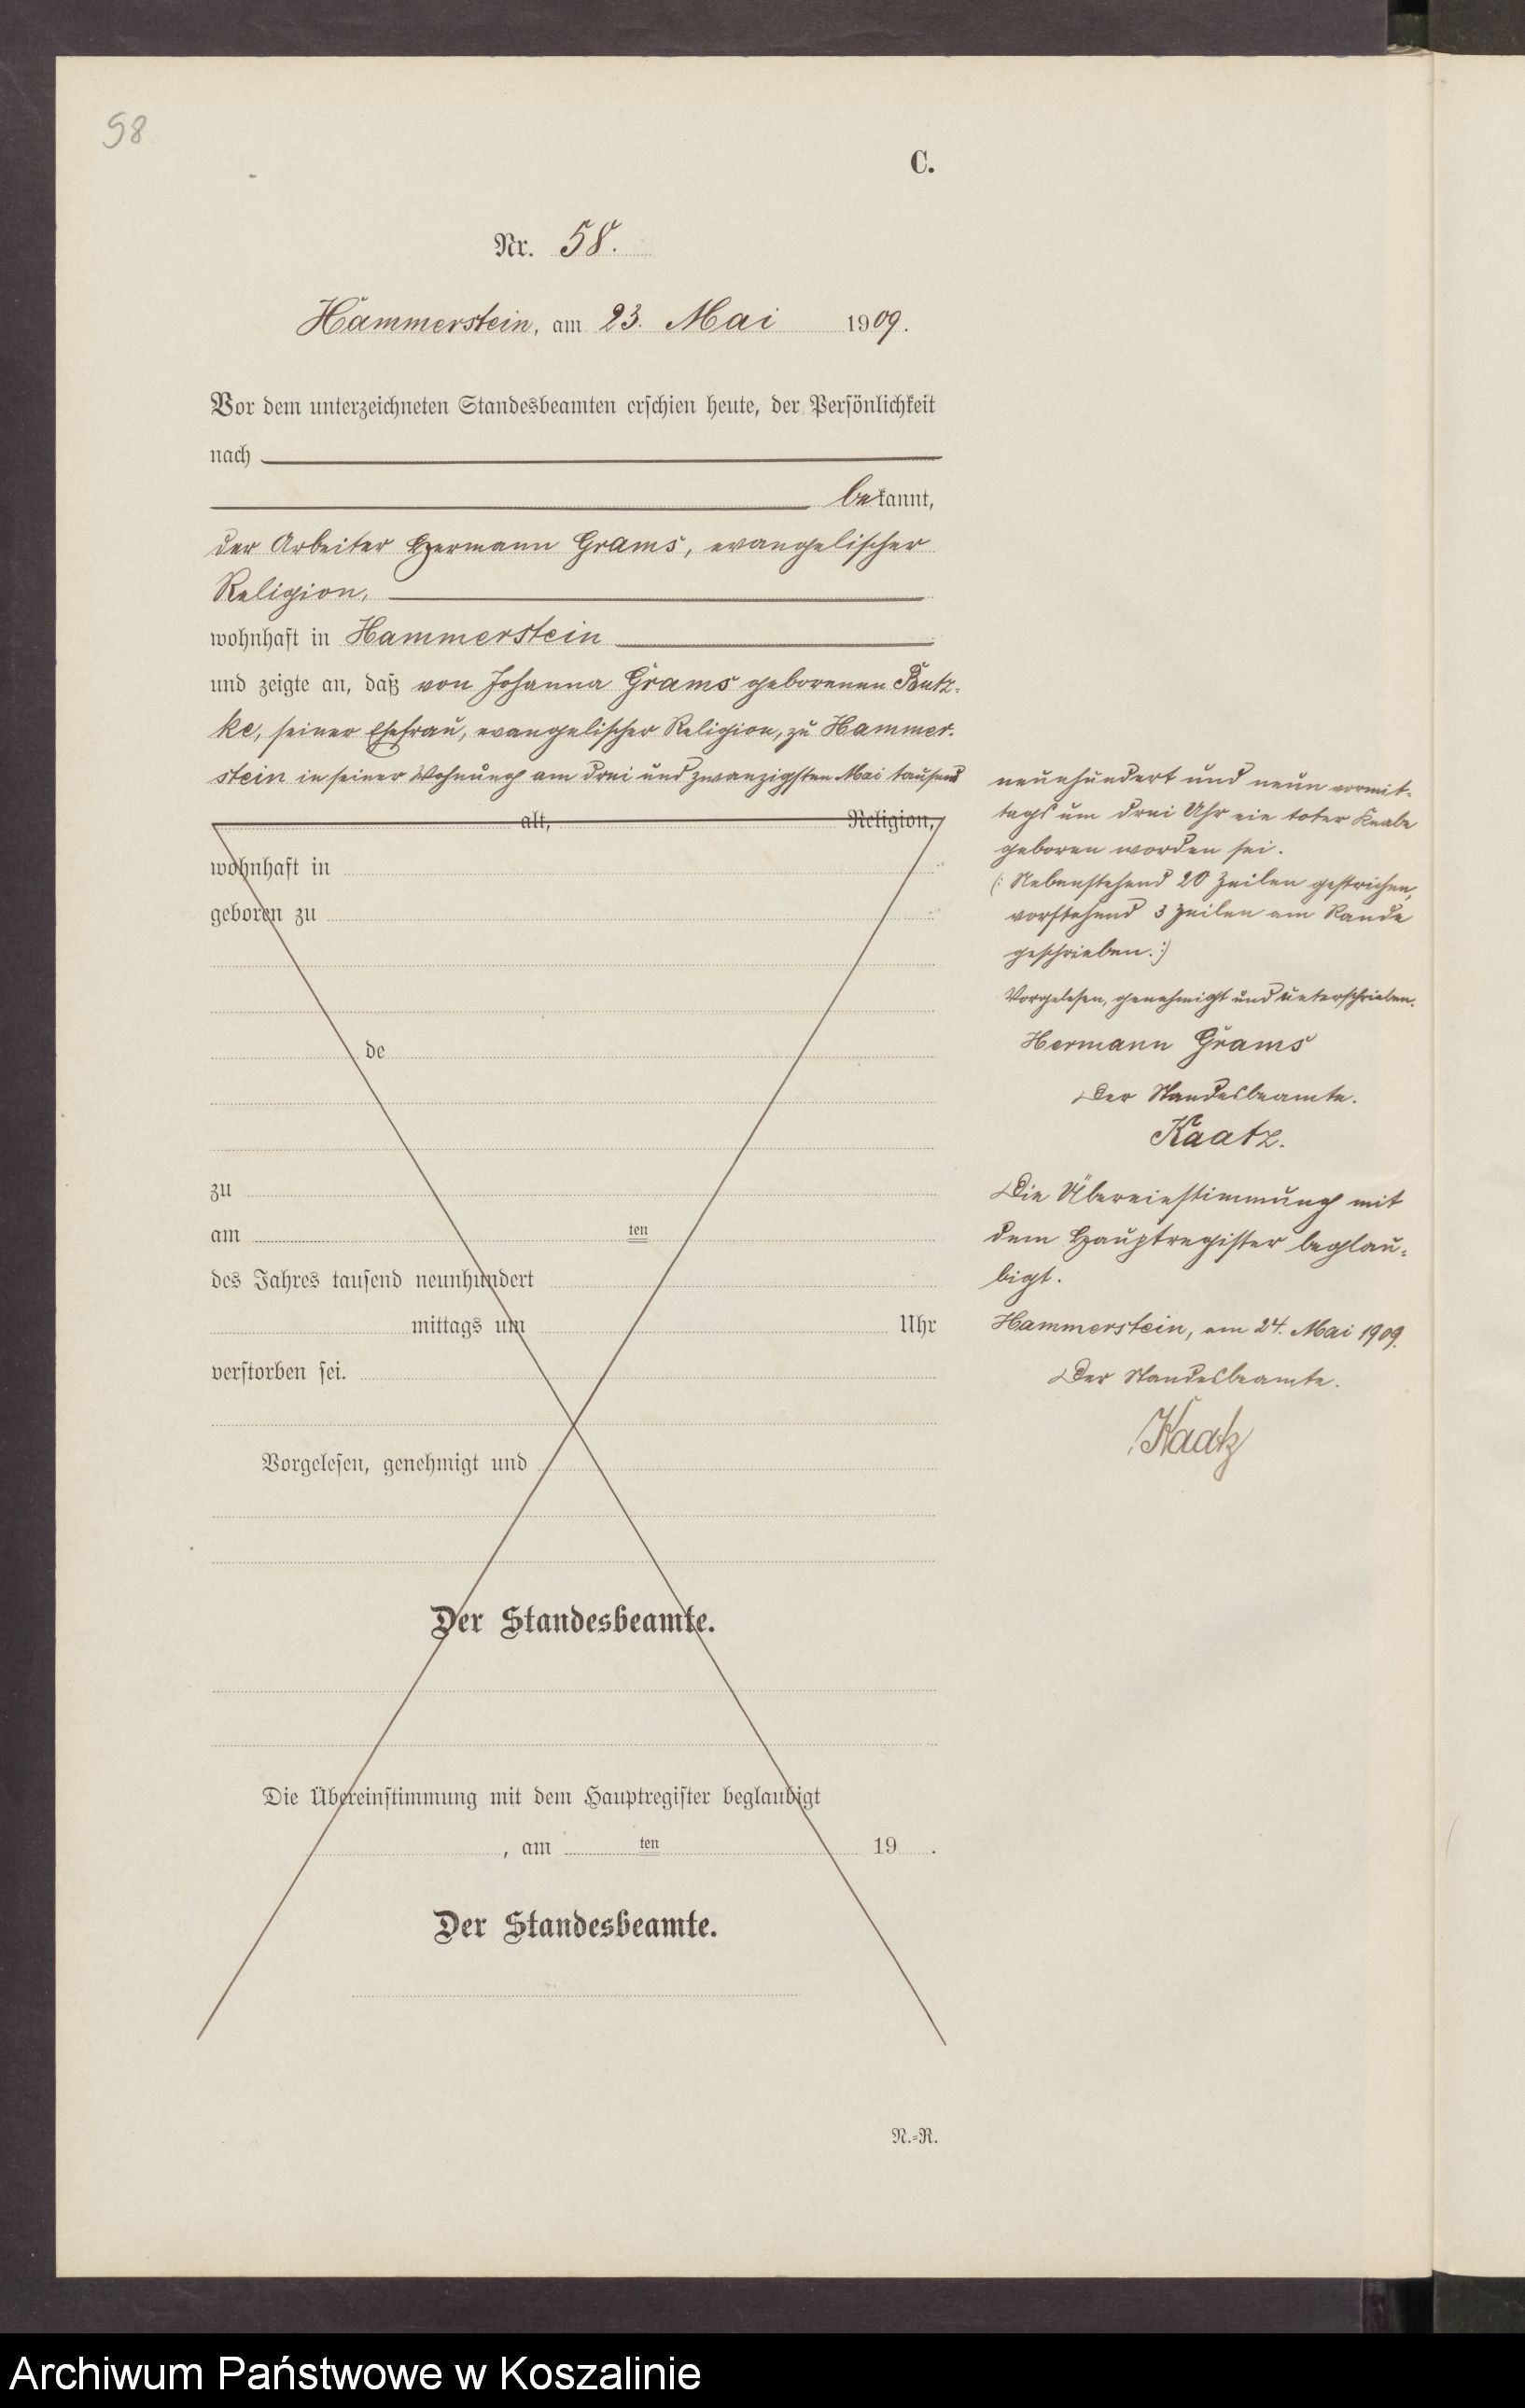 58
C.
Nr. 58.
Hammerstein, am 23. Mai 1909.
Vor dem unterzeichneten Standesbeamten erschien heute, der Persönlichkeit
nach
bekannt,
der Arbeiter Hermann Grams, evangelischer
Religion,
wohnhaft in Hammerstein
und zeigte an, daß von Johanna Grams geborenen Butz-
ke, seiner Ehefrau, evangelischer Religion, zu Hammer-
stein in seiner Wohnung am drei und zwanzigsten Mai tausend
neunhundert und neun vormit-
tags um drei Uhr ein toter Knabe
geboren worden sei.
(: Nebenstehend 20 Zeilen gestrichen,
vorstehend 3 Zeilen am Rande
geschrieben. :)
Vorgelesen, genehmigt und unterschrieben.
Hermann Grams
Der Standesbeamte.
Kaatz.
Die Übereinstimmung mit
dem Hauptregister beglau-
bigt.
Hammerstein, am 24. Mai 1909.
Der Standesbeamte.
Kaatz
alt, Religion,
wohnhaft in
geboren zu
de
zu
am ten
des Jahres tausend neunhundert
mittags um Uhr
verstorben sei.
Vorgelesen, genehmigt und
Der Standesbeamte.
Die Übereinstimmung mit dem Hauptregister beglaubigt
, am ten 19 .
Der Standesbeamte.
N.-R.
Archiwum Państwowe w Koszalinie